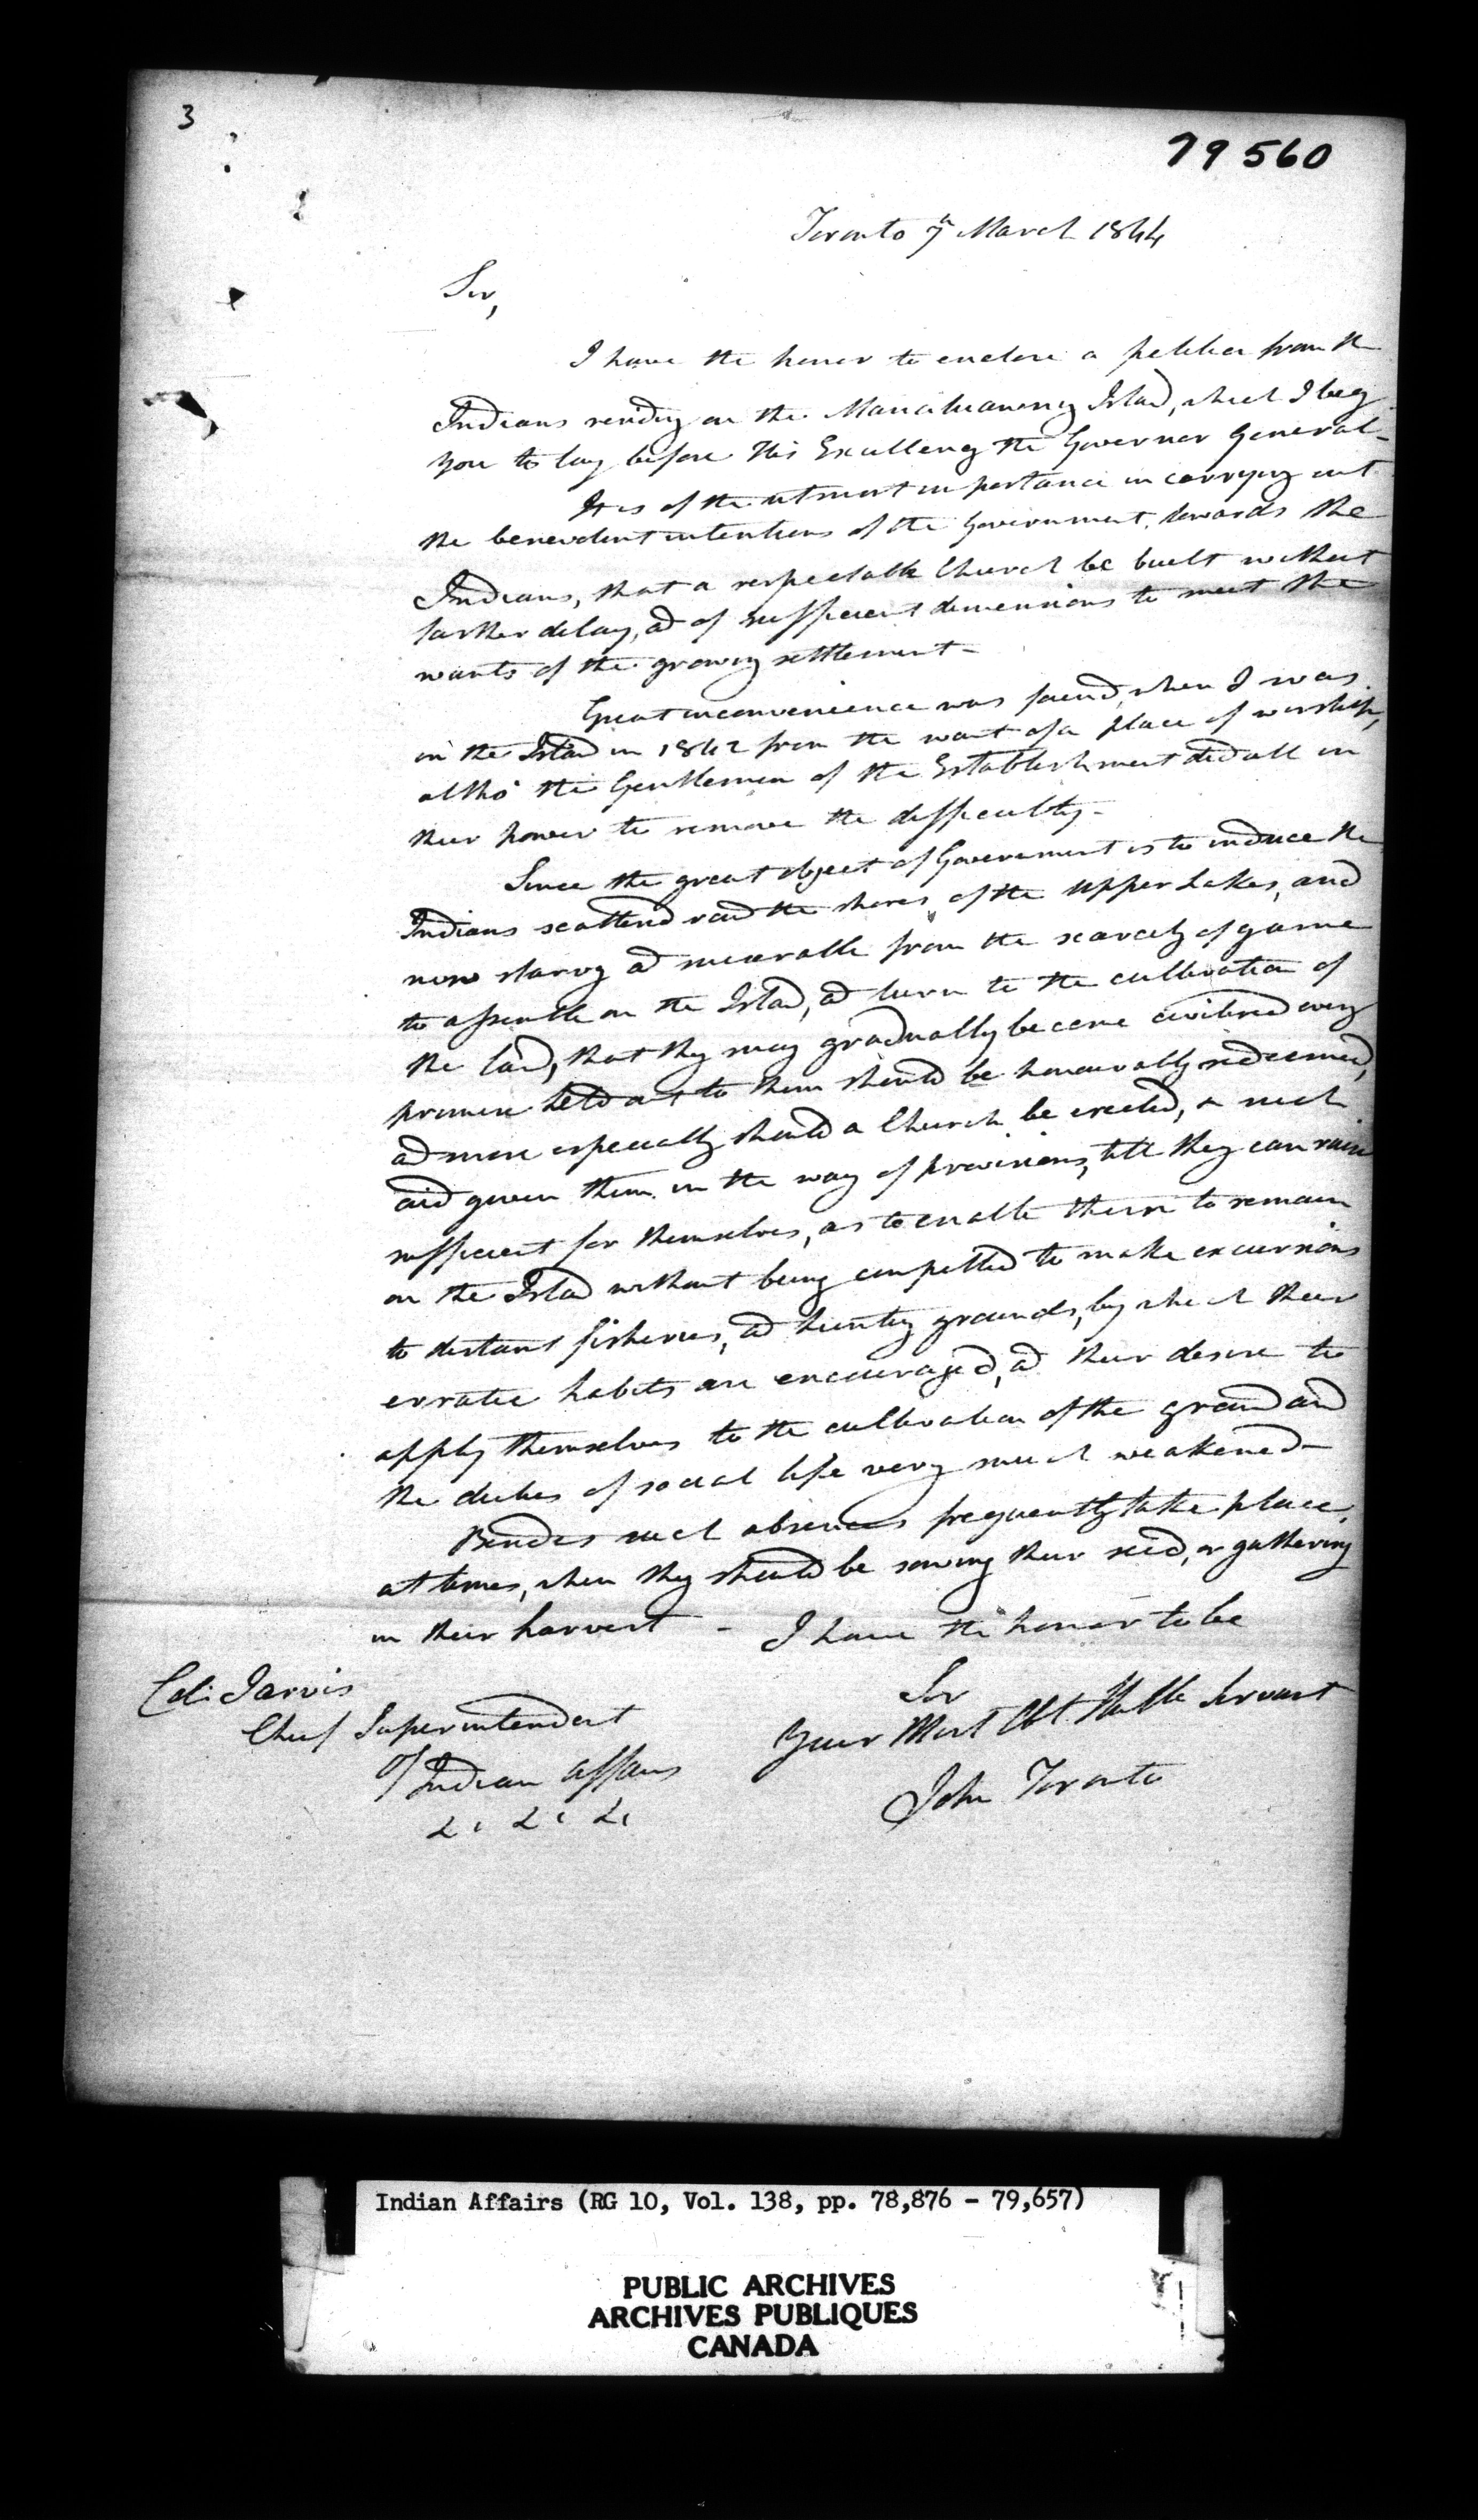 3
79560
Toronto 7th March 1844
Sir,
I have the honor to enclose a petition from the
Indians residing on the Island, which I beg
you to lay before His Excellency the Governor General–
It is of the utmost importance in carrying out
the benevolent intentions of the Government, towards the
Indians, that a respectable Church be built without
farther delay, ad of sufficient dimensions to meet the
wants of the growing settlement–
Great inconvenience was found, when I was
on the Island in 1842 from the want of a place of worship,
altho' the Gentlemen of the Establishment did all in
their power to remove the difficulty–
Since the great object of Government is to induce the
Indians scattered round the shores, of the upper Lakes, and
now starving ad miserable from the scarcity of game
to assemble on the Island, ad turn to the cultivation of
the land, that they may gradually become civilised every
promise held out to them should be honourably redeemed,
ad more especially should a Church be erected, & such
aid given them in the way of provisions, till they can raise
sufficient for themselves, as to enable them to remain
on the Island without being compelled to make excursions
to distant fisheries, ad hunting grounds, by which their
erratic habits are encouraged, ad their desire to
apply themselves to the cultivation of the ground and
the duties of social life very much weakened–
Besides such absences frequently take place,
at times, when they should be sowing their seed, or gathering
in their harvest – I have the honor to be
Sir
Your Most Obt. Hble Servant
John Toronto
Col: Jarvis
Chief Superintendent
of Indian Affairs
&c &c &c
Indian Affairs (RG 10, Vol. 138, pp. 78,876 - 79,657)
PUBLIC ARCHIVES
ARCHIVES PUBLIQUES
CANADA